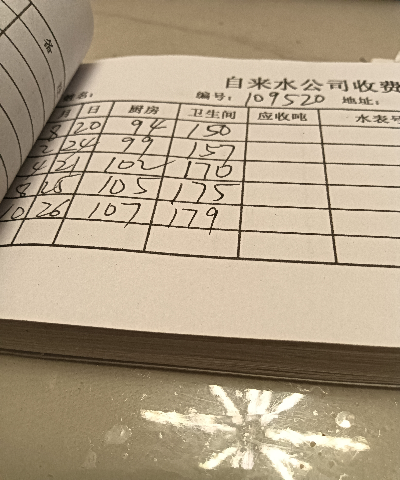 自来水公司收费
姓名： 编号：109520 地址：
月 日 厨房 卫生间 应收吨 水表号
8 20 94 150
2 24 99 157
4 21 102 170
8 25 105 175
10 26 107 179